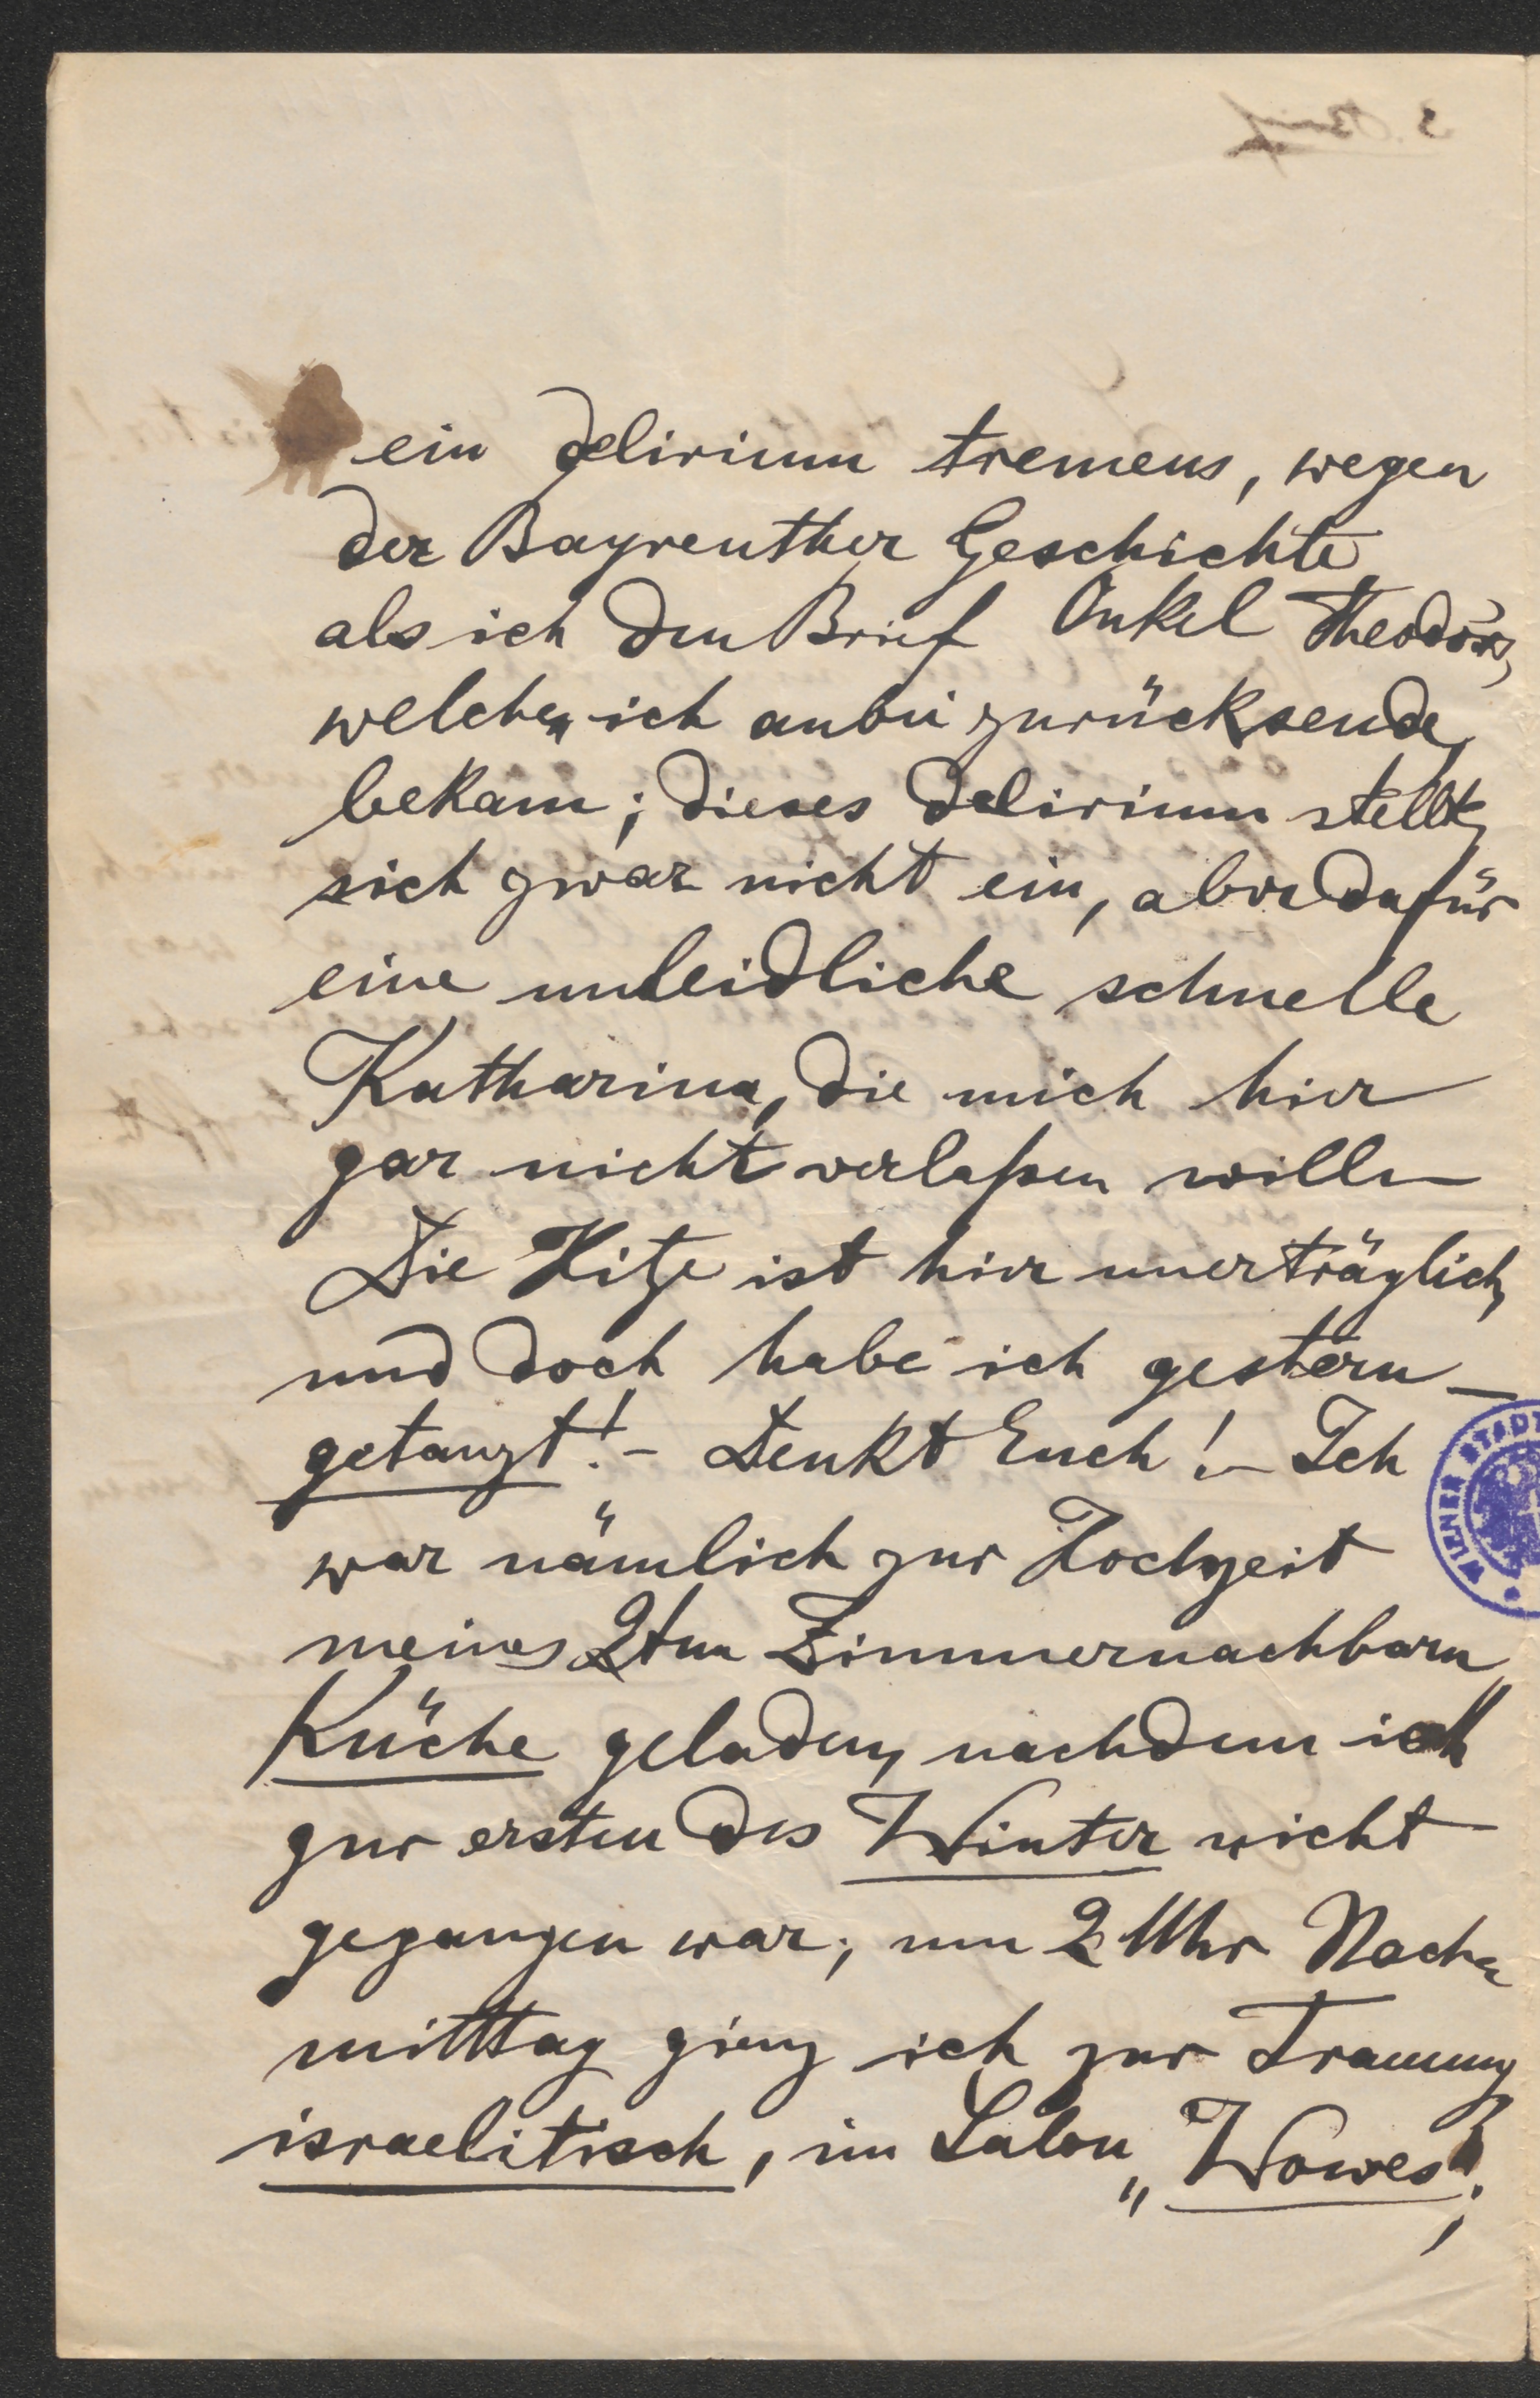 ein delirium tremens, wegen
der Bayreuther Geschichte
als ich den Brief Onkel Theodors,
welchen ich anbei zurücksende,
bekam; dieses delirium stellte
sich zwar nicht ein, aber dafür
eine unleidliche schnelle
Katharina, die mich hier
gar nicht verlaßen will –
Die Hitze ist hier unerträglich,
und doch habe ich gestern –
getanzt! – Denkt Euch! – Ich
war nämlich zur Hochzeit
meines 2ten Zimmernachbarn
Küche geladen, nachdem ich
zur ersten des Winter nicht
gegangen war; um 2 Uhr Nach-
mitttag gieng ich zur Trauung
israelitisch, im Salon „Wowes";
WIENER STADT